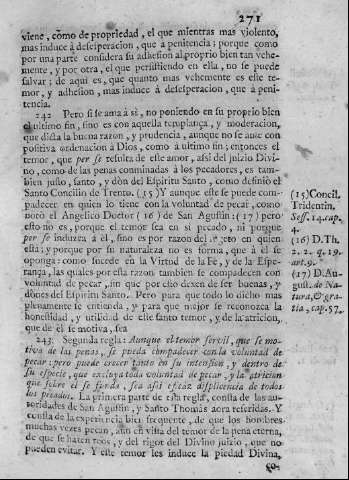 271
viene, como de propriedad, el que mientras mas violento,
mas induce à desesperacion, que à penitencia; porque como
por una parte considera su adhesion al proprio bien tan vehe-
mente, y por otra, el que persistiendo en ella, no se puede
salvar; de aqui es, que quanto mas vehemente es este te-
mor, y adhesion, mas induce à desesperacion, que à peni-
tencia.
242 Pero si se ama à si, no poniendo en su proprio bien
el ultimo fin, sino es con aquella templança, y moderacion,
que dicta la buena razon, y prudencia, aunque no se ame con
positiva ordenacion à Dios, como à ultimo fin; entonces el
temor, que per se resulta de este amor, assi del juizio Divi-
no, como de las penas conminadas à los pecadores, es tam-
bien justo, santo, y dòn del Espiritu Santo, como definiò el
Santo Concilio de Trento. (15) Y aunque este se puede com-
padecer en quien lo tiene con la voluntad de pecar, como
notò el Angelico Doctor (16) de San Agustin: (17) pero
esto no es, porque el temor sea en si pecado, ni porque
per se induzca à èl, sino es por razon del sugeto en quien
està; y porque por su naturaleza no es forma, que à èl se
oponga: como sucede en la Virtud de la Fè, y de la Espe-
rança, las quales por esta razon tambien se compadecen con
voluntad de pecar, sin que por esso dexen de ser buenas, y
dònes del Espiritu Santo. Pero para que todo lo dicho mas
plenamente se entienda, y para que mejor se reconozca la
honestidad, y utilidad de este santo temor, y de la atricion,
que de èl se motiva, sea
243 Segunda regla: Aunque el temor servil, que se mo-
tiva de las penas, se pueda compadecer con la voluntad de
pecar; pero puede crecer tanto en su intension, y dentro de
su especie, que excluya toda voluntad de pecar, y la atricion
que sobre el se funda, sea assi eficaz displicencia de todos
los pecados. La primera parte de esta regla, consta de las au-
toridades de San Agustin, y Santo Thomàs aora referidas. Y
consta de la experiencia bien frequente, de que los hombres
muchas vezes pecan, aùn en vista del temor de la pena eterna,
de que se hazen reos, y del rigor del Divino juizio, que no
pueden evitar. Y este temor les induce la piedad Divina,
(15) Concil.
Tridentin.
Sess. 14. cap.
4.
(16) D. Th.
2. 2. q. 19.
art. 9.
(17) D. Au-
gust. de Na-
tura, & gra-
tia, cap. 57.